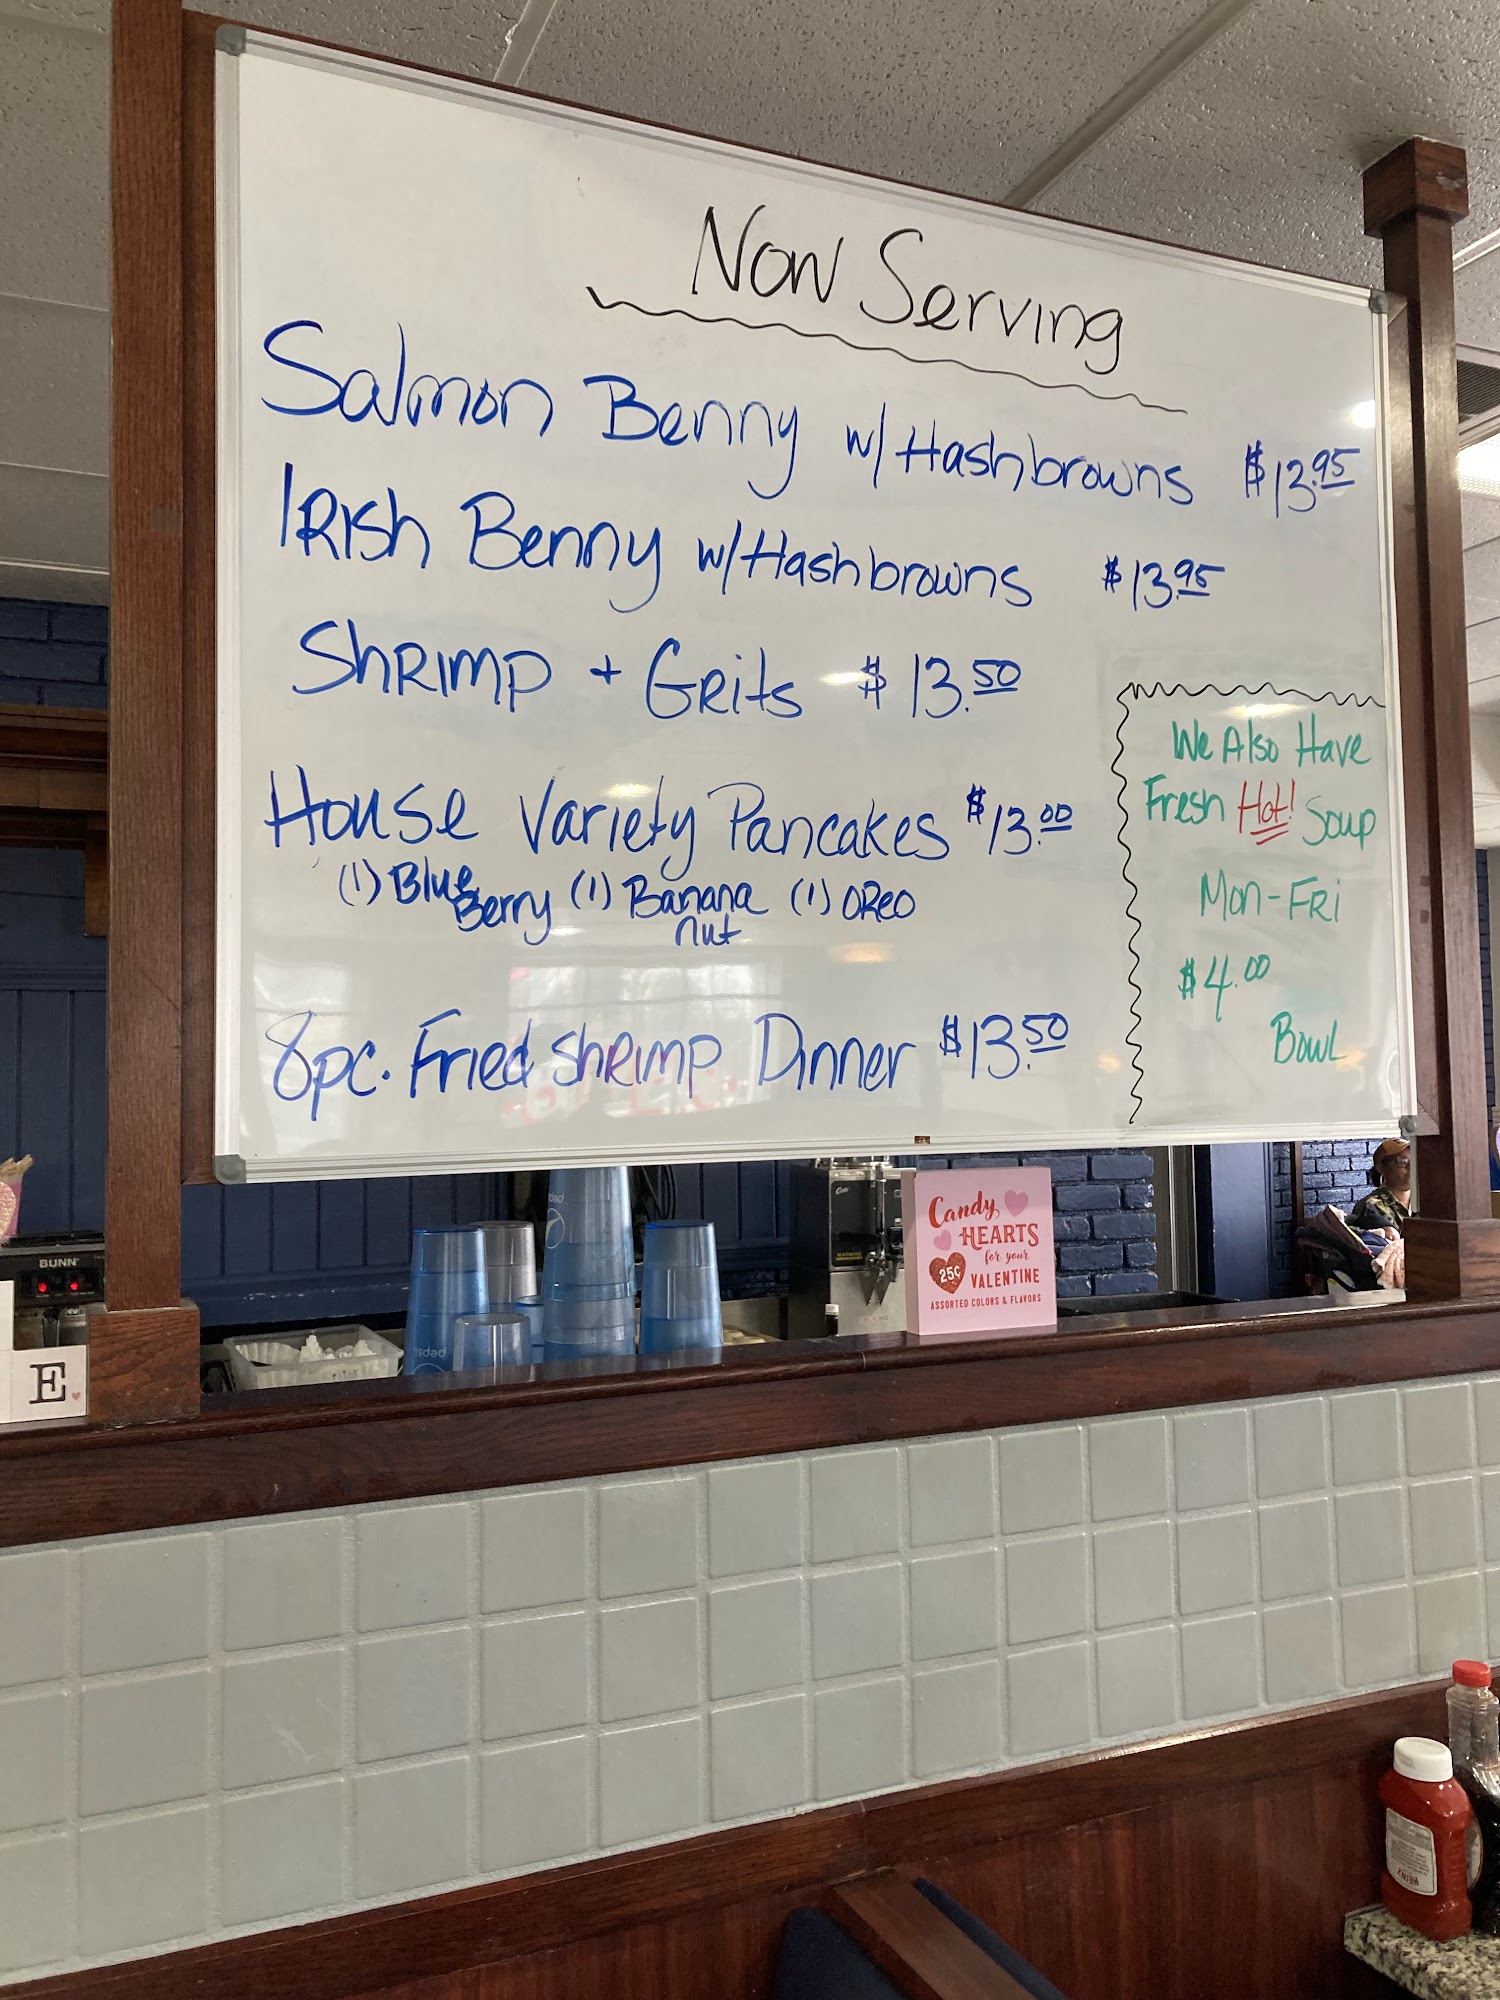 Now Serving
Salmon Benny w/Hashbrowns $13.95
IRISh Benny w/Hashbrowns $13.95
ShRIMP + GRits $13.50
House Variety Pancakes $13.00
(1) Blue Berry (1) Banana nut (1) OReo
8pc. Fried ShRimp Dinner $13.50
We Also Have
Fresh Hot! Soup
Mon-FRi
$4.00
Bowl
BUNN
E
Candy
HEARTS
for your
25¢ VALENTINE
ASSORTED COLORS & FLAVORS
pepsi
HEINZ